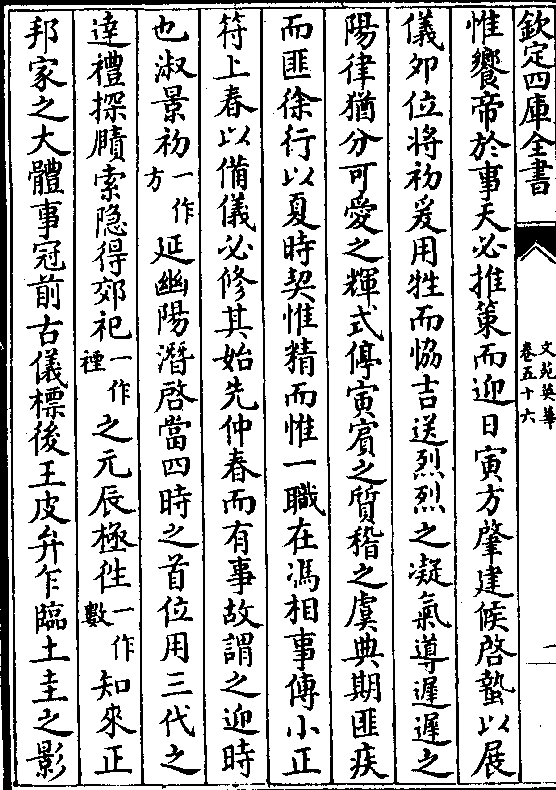 欽定四庫全書
文苑英華
卷五十六
一
惟饗帝於事天必推䇿而迎日寅方肇建候啓蟄以展
儀夘位將初爰用牲而恊吉送烈烈之凝氣導遲遲之
陽律猶分可愛之輝式停寅賔之質稽之虞典期匪疾
而匪徐行以夏時契惟精而惟一職在馮相事傳小正
符上春以備儀必修其始先仲春而有事故謂之迎時
也淑景初一作方延幽陽潛啓當四時之首位用三代之
達禮探賾索隐得郊祀一作禋之元辰極徃一作數知來正
邦家之大體事冠前古儀標後王皮弁乍臨土圭之影